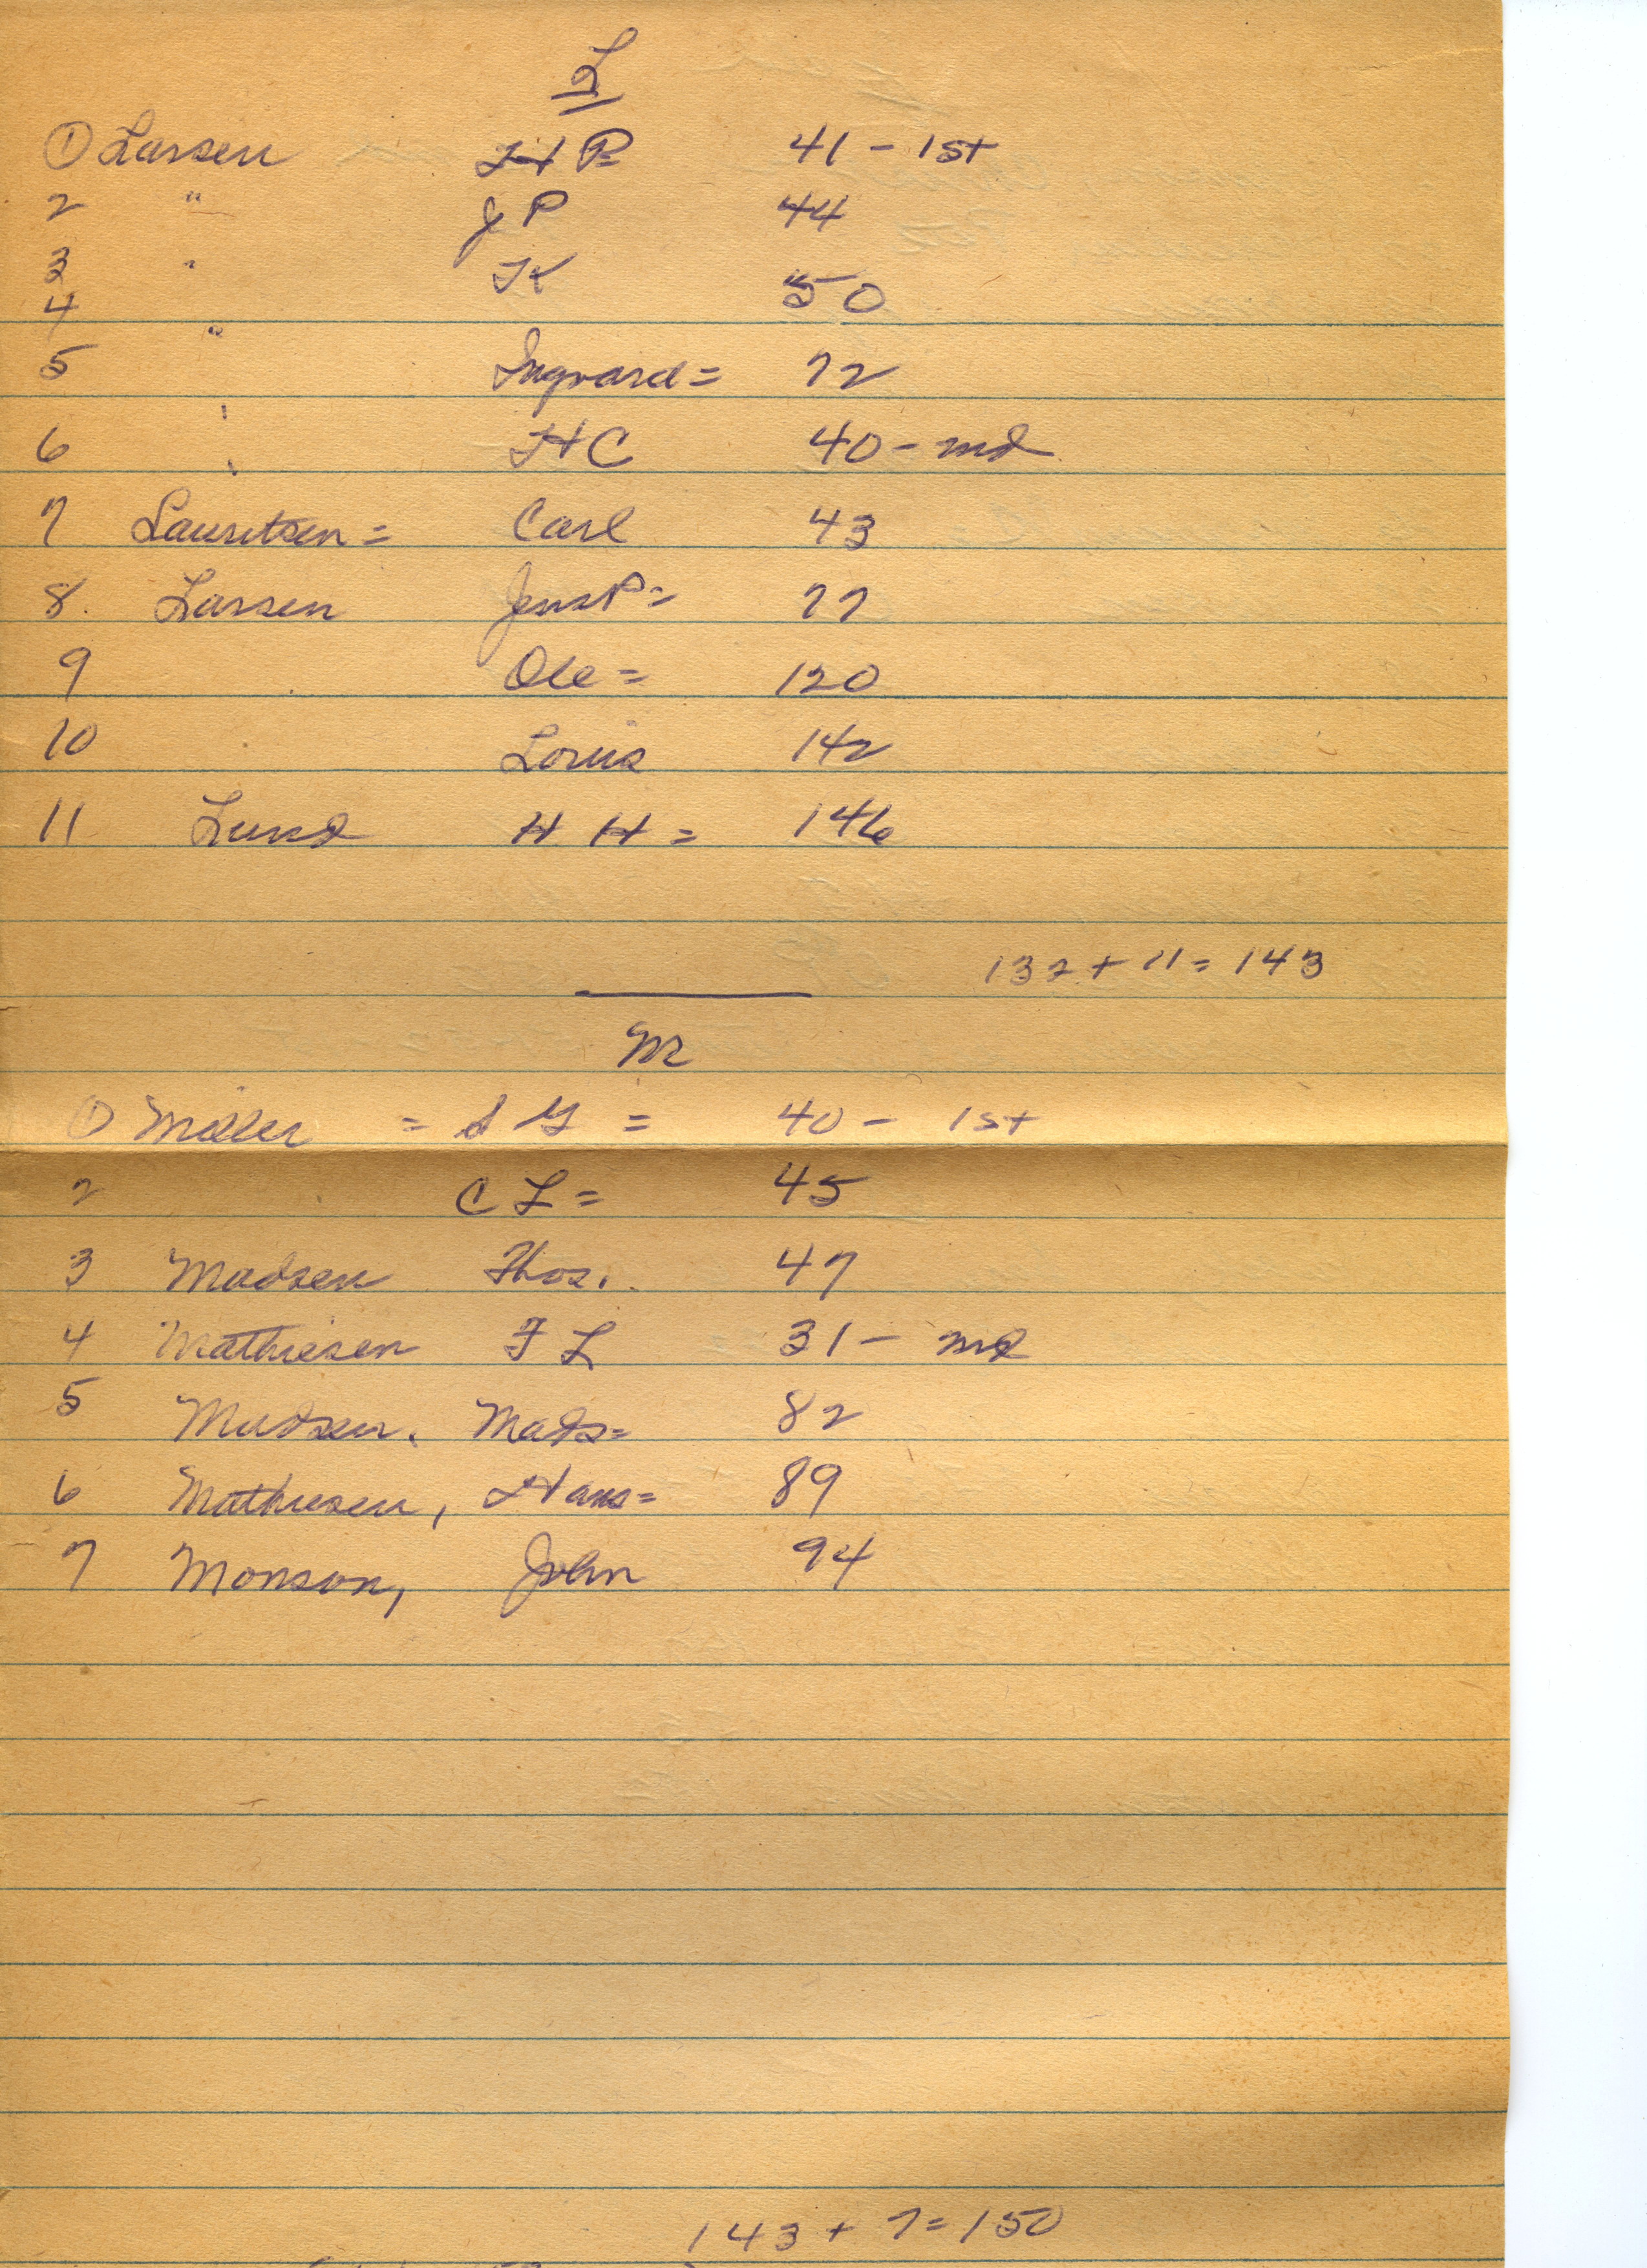 L
① Larsen HP= 41 - 1st
2 " JP 44
3 " K 50
4 "
5 " Ingvard = 72
6 " HC 40 - md
7 Lauritsen = Carl 43
8. Larsen Jens P = 77
9 Ole = 120
10 Louis 142
11 Lund H H = 146
132 + 11 = 143
M
① Miller = S G = 40 - 1st
2 C L = 45
3 Madsen Thos. 47
4 Mathiesen F L 31 - md
5 Madsen. Mads = 82
6 Mathiesen, Hans = 89
7 Monson, John 94
143 + 7 = 150